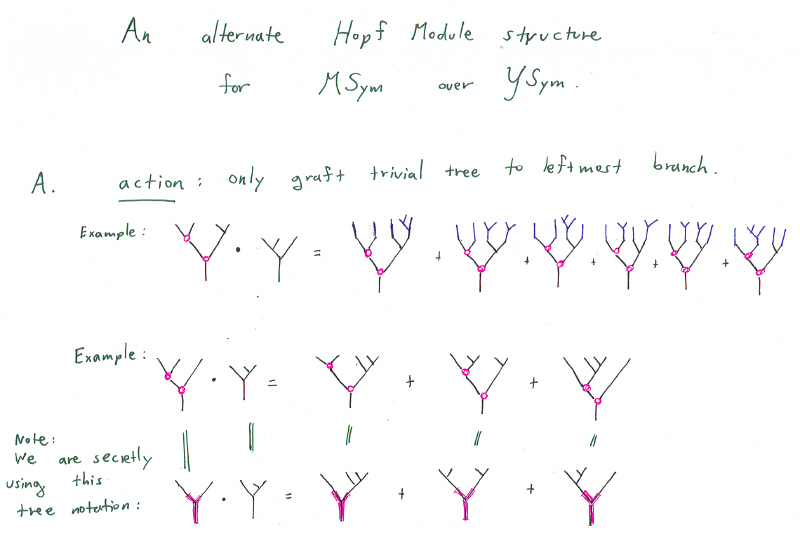 An alternate Hopf Module structure
for MSym over YSym.
A. action: only graft trivial tree to leftmost branch.
Example: · = + + + + +
Example: · = + +
Note:
We are secretly
using this
tree notation: · = + +